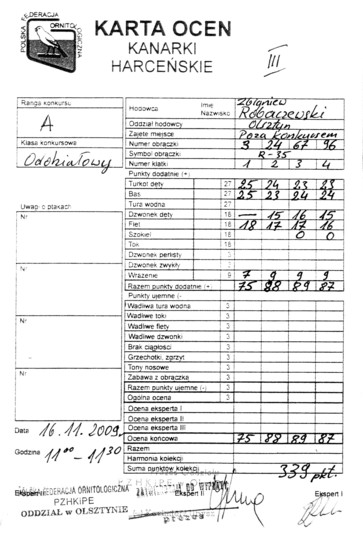 POLSKA FEDERACJA ORNITOLOGICZNA
KARTA OCEN
KANARKI
HARCEŃSKIE
III
Ranga konkursu
A
Klasa konkursowa
Oddziałowy
Uwagi o ptakach
Nr
Nr
Nr
Nr
Data 16.11.2009
Godzina 11 00 - 11 30
Hodowca Imię Zbigniew
Nazwisko
Oddział hodowcy Olsztyn
Zajęte miejsce Poza konkursem
Numer obrączki 3 24 67 96
Symbol obrączki R-35
Numer klatki 1 2 3 4
Punkty dodatnie (+)
Turkot dęty 27 25 24 23 23
Bas 27 25 23 24 24
Tura wodna 27
Dzwonek dęty 18 — 15 16 15
Flet 18 18 17 17 16
Szokiel 18 0 0
Tok 18
Dzwonek perlisty 3
Dzwonek zwykły
Wrażenie 9 7 9 9 9
Razem punkty dodatnie (+) 75 88 89 87
Punkty ujemne (-)
Wadliwa tura wodna 3
Wadliwe toki 3
Wadliwe flety 3
Wadliwe dzwonki 3
Brak ciągłości 3
Grzechotki, zgrzyt 3
Tony nosowe 3
Zabawa z obrączką 3
Razem punkty ujemne (-) 3
Ogólna ocena 3
Ocena eksperta I
Ocena eksperta II
Ocena eksperta III
Ocena końcowa 75 88 89 87
Razem
Harmonia kolekcji
Suma punktów kolekcji 339 pkt.
Ekspert II
Ekspert I
POLSKA FEDERACJA ORNITOLOGICZNA
PZHKiPE
ODDZIAŁ w OLSZTYNIE